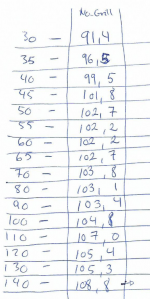 No-Grill
30 - 91,4
35 - 96,5
40 - 99,5
45 - 101,8
50 - 102,7
55 - 102,2
60 - 102,2
65 - 102,7
70 - 103,8
80 - 103,1
90 - 103,4
100 - 104,8
110 - 107,0
120 - 105,4
130 - 105,3
140 - 108,8